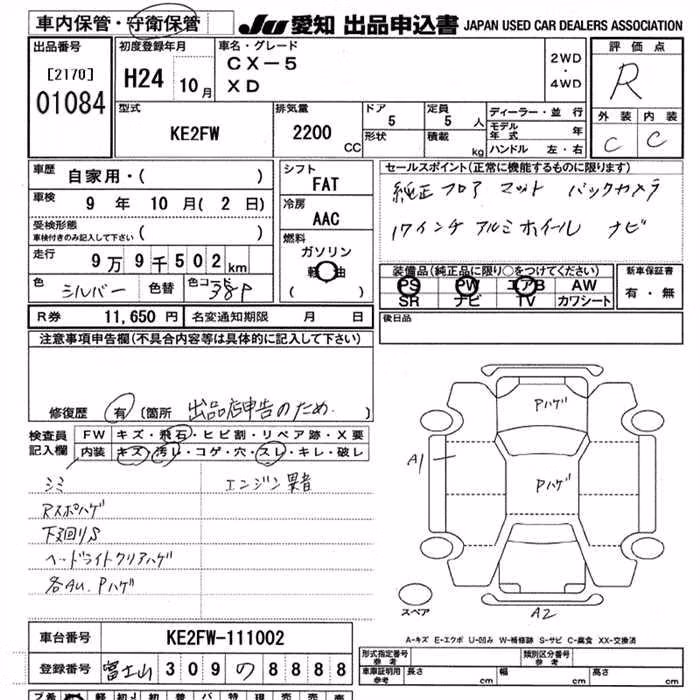 車内保管・守衛保管
JU 愛知 出品申込書 JAPAN USED CAR DEALERS ASSOCIATION
出品番号
[2170]
01084
初度登録年月
H24 10月
車名・グレード
CX-5
XD
2WD
・
4WD
評価点
R
外装 内装
C C
型式
KE2FW
排気量
2200 CC
ドア
5
定員
5 人
形状
積載
kg
ディーラー・並行
モデル年式 年
ハンドル 左・右
車歴
自家用・( )
車検
9 年 10 月( 2 日)
受検形態
車検付きのみ記入して下さい ( )
走行
9万9千502km
色
シルバー
色替
色コード
38P
シフト
FAT
冷房
AAC
燃料
ガソリン
軽油
( )
セールスポイント(正常に機能するものに限ります)
純正フロアマット バックカメラ
17インチアルミホイール ナビ
装備品(純正品に限り○をつけてください)
PS PW エアB AW
SR ナビ TV カワシート
新車保証書
有・無
R券 11,650円
名変通知期限 月 日
後日品
注意事項申告欄(不具合内容等は具体的に記入して下さい)
修復歴 有 〔箇所 出品店申告のため 〕
検査員
記入欄
FW キズ・飛石・ヒビ割・リペア跡・X要
内装 キズ・汚レ・コゲ・穴・スレ・キレ・破レ
シミ
エンジン異音
Rスポハゲ
下廻りS
ヘッドライトクリアハゲ
各AU.Pハゲ
Pハゲ
A1
Pハゲ
A2
スペア
A-キズ E-エクボ U-凹み W-補修跡 S-サビ C-腐食 XX-交換済
車台番号
KE2FW-111002
登録番号
富士山 309 の 8888
形式指定番号
参考
類別区分番号
参考
車庫証明用
参考
長さ cm
幅 cm
高さ cm